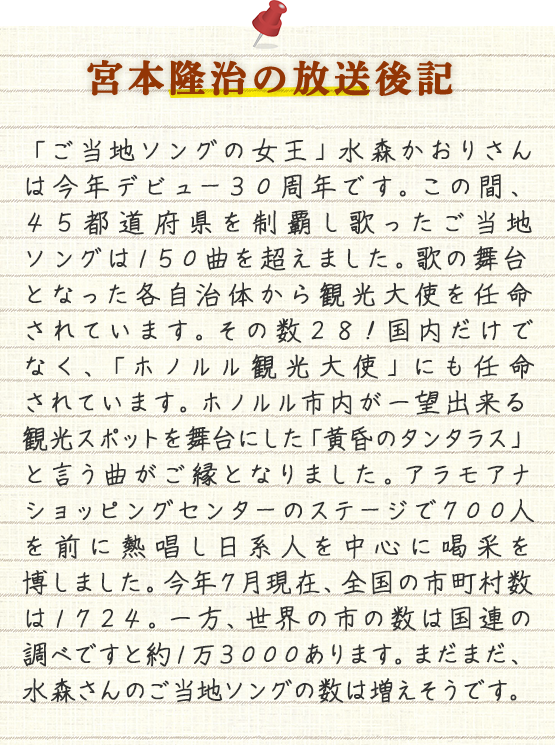 宮本隆治の放送後記
「ご当地ソングの女王」水森かおりさん
は今年デビュー３０周年です。この間、
４５都道府県を制覇し歌ったご当地
ソングは１５０曲を超えました。歌の舞台
となった各自治体から観光大使を任命
されています。その数２８！国内だけで
なく、「ホノルル観光大使」にも任命
されています。ホノルル市内が一望出来る
観光スポットを舞台にした「黄昏のタンタラス」
と言う曲がご縁となりました。アラモアナ
ショッピングセンターのステージで７００人
を前に熱唱し日系人を中心に喝采を
博しました。今年７月現在、全国の市町村数
は１７２４。一方、世界の市の数は国連の
調べですと約１万３０００あります。まだまだ、
水森さんのご当地ソングの数は増えそうです。